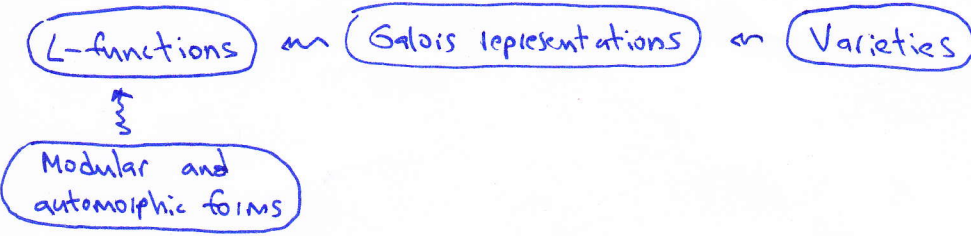 L-functions Galois representations Varieties
Modular and
automorphic forms